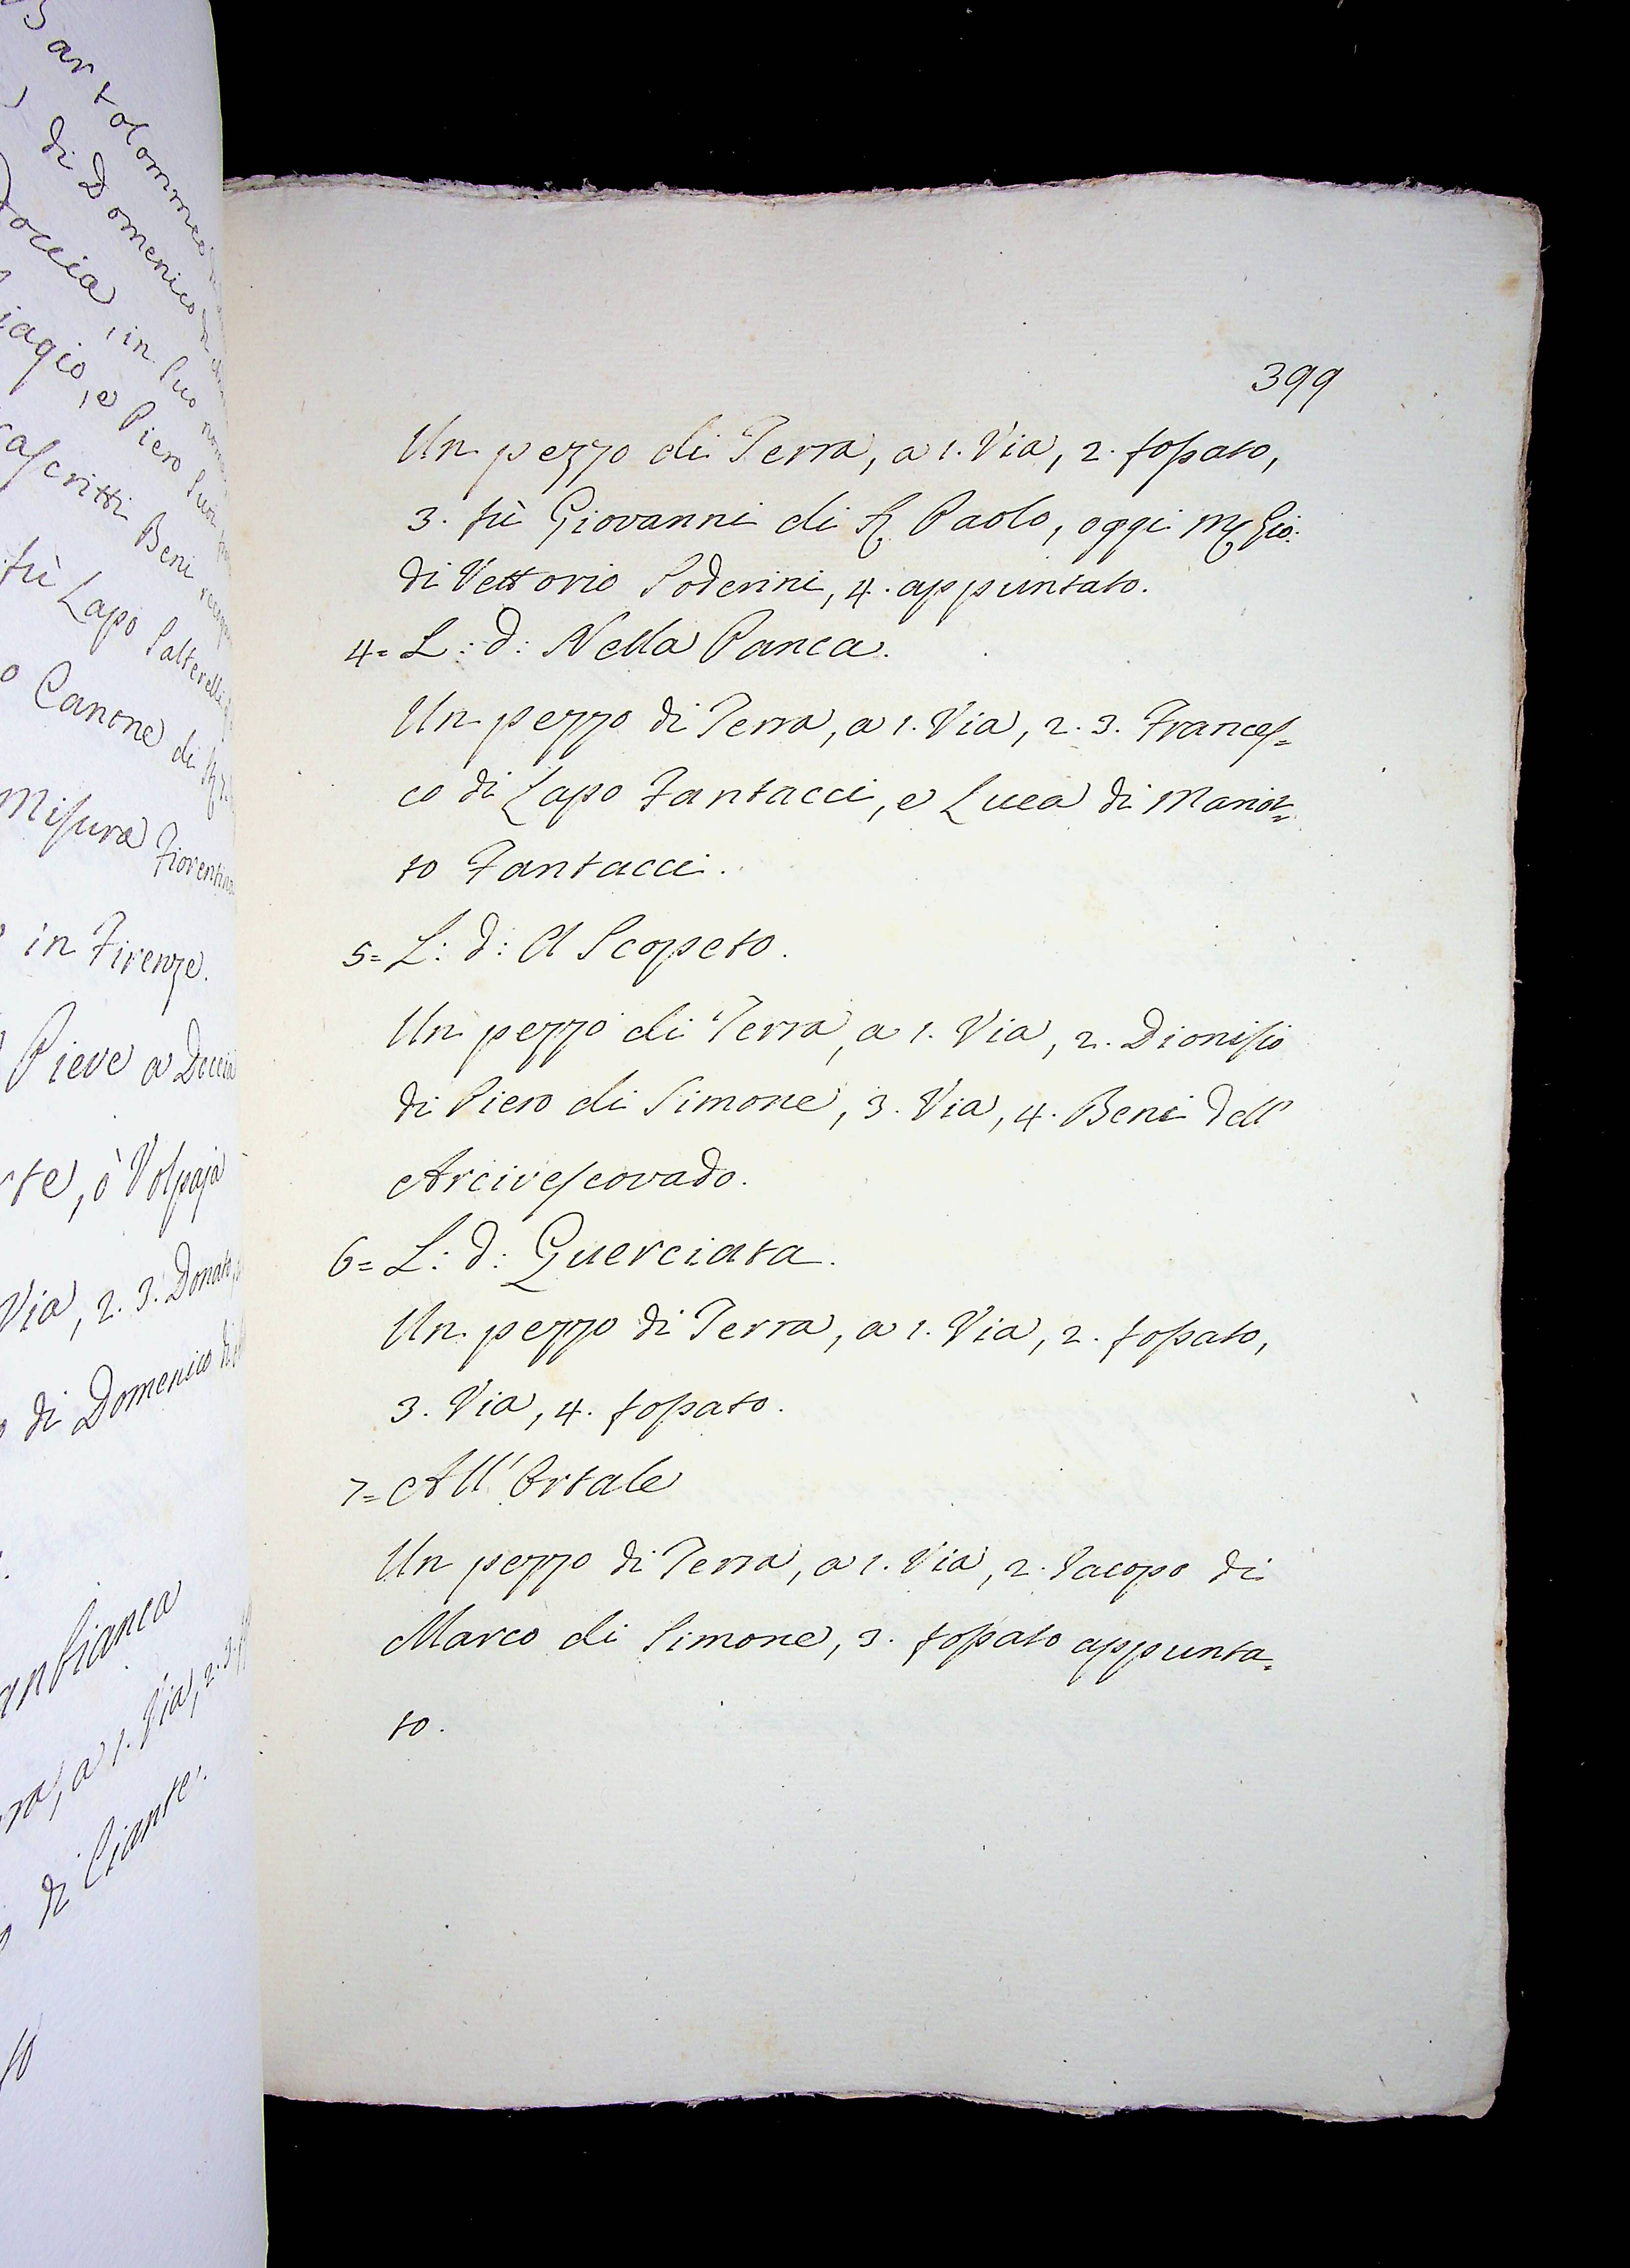 Bartolommeo
di Domenico di
Doccia, in suo nome
Biagio, e Piero suoi
infrascritti Beni
fù Lapo Salterelli
Canone di
Misura Fiorentina
in Firenze.
Pieve a Doccia
ò Volpaja
Via, 2. 3. Donato
di Domenico
a 1. Via, 2. 3.
di Ciante.
399
Un pezzo di Terra, a 1. Via, 2. fossato,
3. fù Giovanni di Sr. Paolo, oggi Mr. Gio:
di Vettorio Soderini, 4. appuntato.
4= L: d: Nella Panca.
Un pezzo di Terra, a 1. Via, 2. 3. Frances=
co di Lapo Fantacci, e Luca di Mariot=
to Fantacci.
5= L: d: A Scopeto.
Un pezzo di Terra, a 1. Via, 2. Dionisio
di Piero di Simone, 3. Via, 4. Beni dell'
Arcivescovado.
6= L: d: Querciata.
Un pezzo di Terra, a 1. Via, 2. fossato,
3. Via, 4. fossato.
7= All'Ortale
Un pezzo di Terra, a 1. Via, 2. Jacopo di
Marco di Simone, 3. fossato appunta=
to.